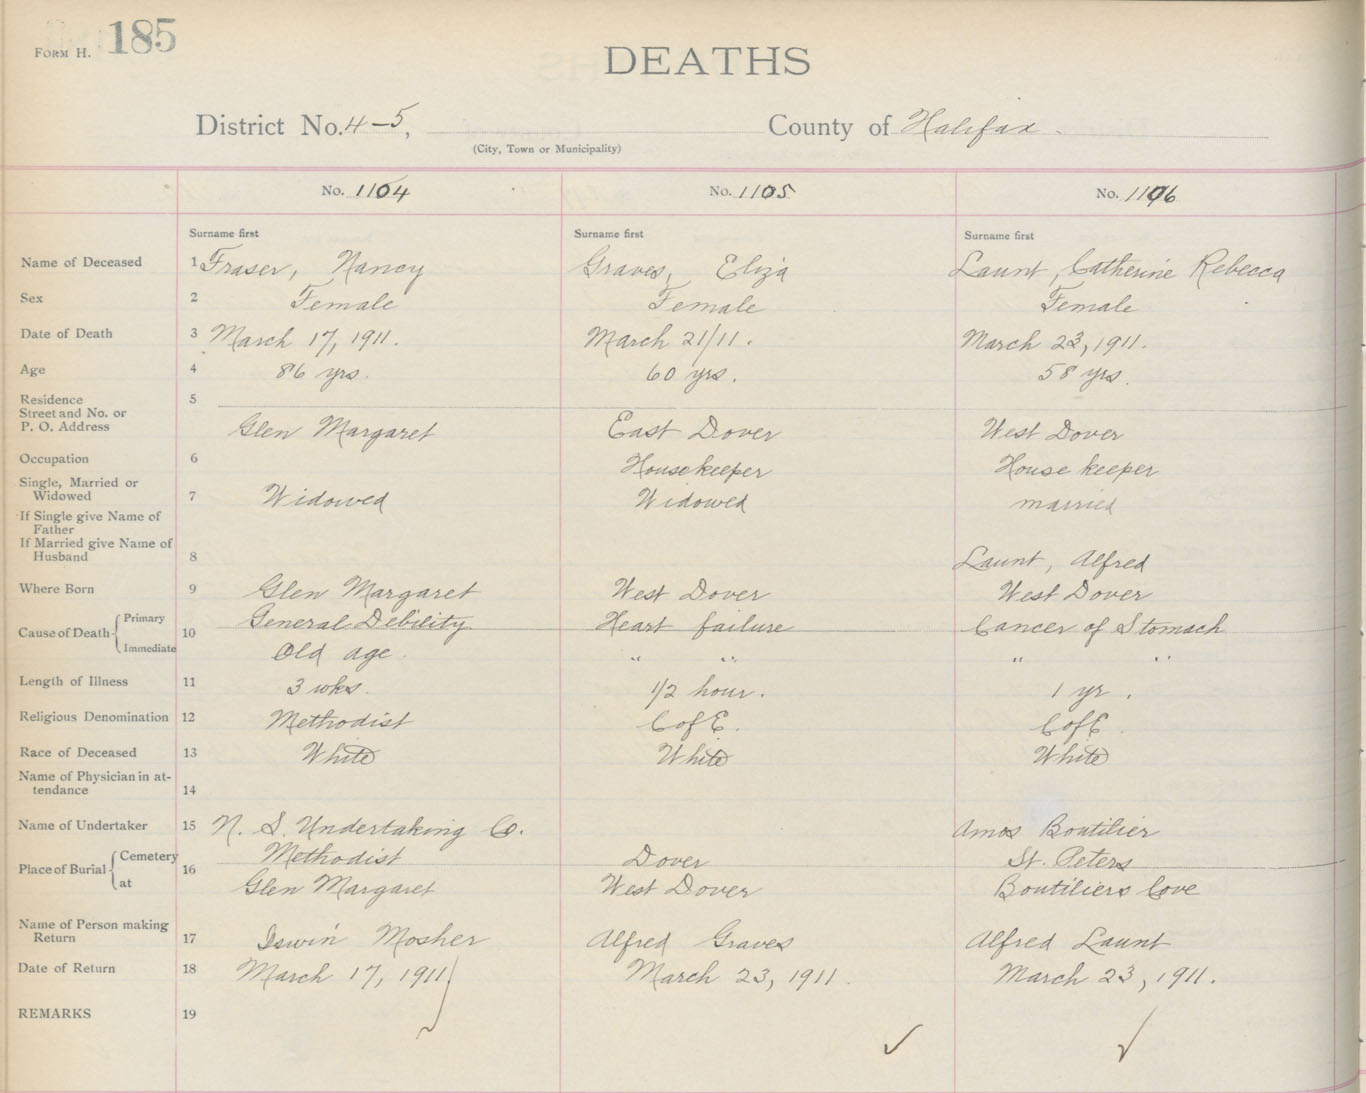 FORM H. 185
DEATHS
District No. 4-5, County of Halifax.
(City, Town or Municipality)
No. 1104 No. 1105 No. 1106
Surname first Surname first Surname first
Name of Deceased 1 Fraser, Nancy Graves, Eliza Launt, Catherine Rebecca
Sex 2 Female Female Female
Date of Death 3 March 17, 1911. March 21/11. March 23, 1911.
Age 4 86 yrs. 60 yrs. 58 yrs.
Residence 5
Street and No. or
P. O. Address Glen Margaret East Dover West Dover
Occupation 6 Housekeeper House keeper
Single, Married or
Widowed 7 Widowed Widowed married
If Single give Name of
Father
If Married give Name of
Husband 8 Launt, Alfred
Where Born 9 Glen Margaret West Dover West Dover
Cause of Death 10 Primary General Debility Heart failure Cancer of Stomach
Immediate Old age. " " " "
Length of Illness 11 3 wks. 1/2 hour. 1 yr.
Religious Denomination 12 Methodist C of E. C of E.
Race of Deceased 13 White White White
Name of Physician in at-
tendance 14
Name of Undertaker 15 N. S. Undertaking Co. Amos Boutilier
Place of Burial 16 Cemetery Methodist Dover St. Peters
at Glen Margaret West Dover Boutiliers Cove
Name of Person making
Return 17 Mosher Alfred Graves Alfred Launt
Date of Return 18 March 17, 1911 March 23, 1911. March 23, 1911.
REMARKS 19